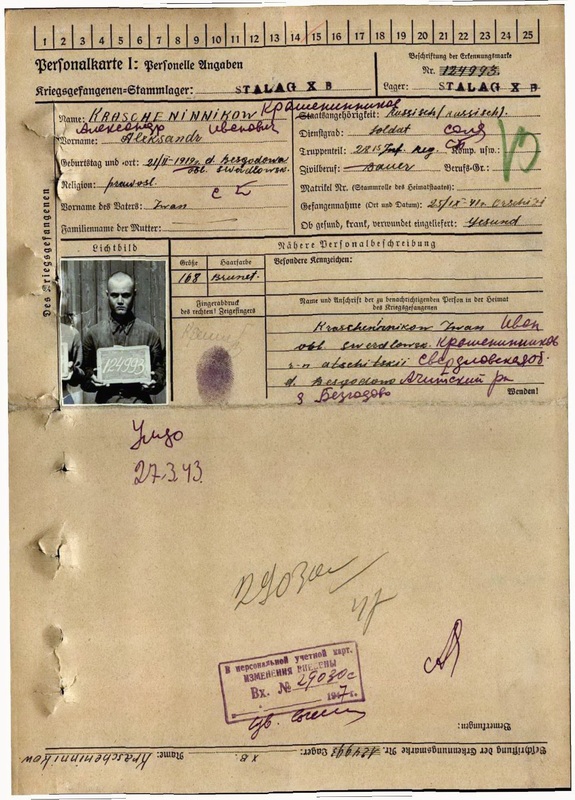 1 2 3 4 5 6 7 8 9 10 11 12 13 14 15 16 17 18 19 20 21 22 23 24 25
Personalkarte I: Personelle Angaben
Kriegsgefangenen-Stammlager: STALAG X B
Beschriftung der Erkennungsmarke
Nr. 124993.
Lager: STALAG X B
Des Kriegsgefangenen
Name: KRASCHENINNIKOW Крашенинников
Александр Иванович
Vorname: Aliksandr
Geburtstag und -ort: 21/II-1919 г. d. Besgodowo
obl. Swerdlowsk.
Religion: prawosl.
Vorname des Vaters: Iwan
Familienname der Mutter:
Staatsangehörigkeit: Russisch (russisch).
Dienstgrad: Soldat
Truppenteil: 2815 Inf. Reg. Komp. usw.:
Zivilberuf: Bauer Berufs-Gr.:
Matrikel Nr. (Stammrolle des Heimatstaates):
Gefangennahme (Ort und Datum): 25/IX-41 г.
Ob gesund, krank, verwundet eingeliefert: Gesund
Lichtbild
124993
Größe Haarfarbe
168 Brunet.
Fingerabdruck
des rechten! Zeigefingers
Nähere Personalbeschreibung
Besondere Kennzeichen:
Name und Anschrift der zu benachrichtigenden Person in der Heimat
des Kriegsgefangenen
Krascheninnikow Iwan Иван
obl. Swerdlowsk. Крашенинников
r-n atschitskii Свердловская об.
d. Besgodowo Ачитский р-н
д Безгодово
Wenden!
27.3.43.
29030с
В персональной учетной карт.
ИЗМЕНЕНИЯ ВНЕСЕНЫ
Вх. № 29030с
1947 г.
Bemerkungen:
Beschriftung der Erkennungsmarke Nr. 124993 Lager: XB. Name: Krascheninnikow